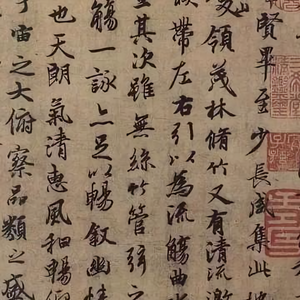 賢畢至少長咸集此
山峻領茂林脩竹又有清流激
帶左右引以為流觴曲水
坐其次雖無絲竹管弦之
觴一詠亦足以暢敘幽情
也天朗氣清惠風和暢仰
宙之大俯察品類之盛